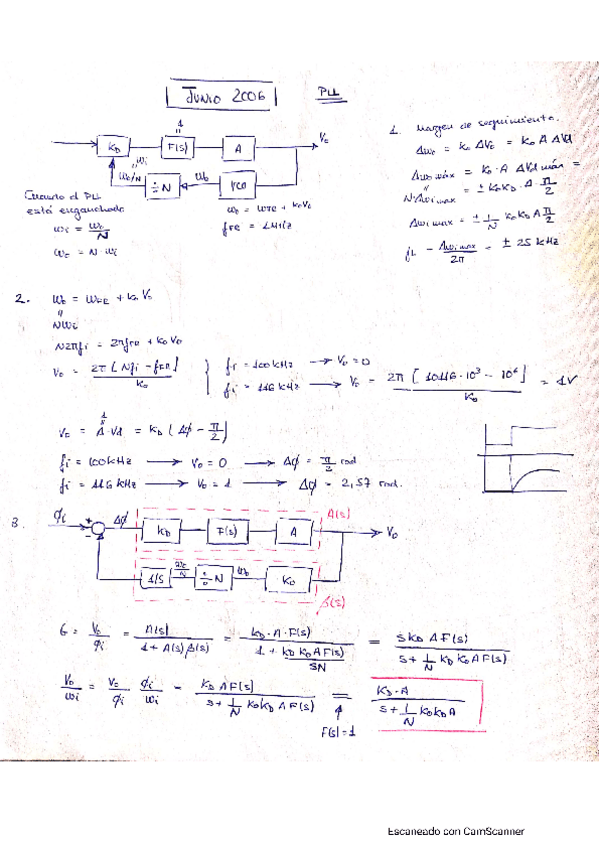 JUNIO 2006 PLL
1
K_D F(s) A V_o
ω_o/N ÷N ω_o VCO
Cuando el PLL
está enganchado
ω_i = ω_o/N
ω_o = N·ω_i
ω_o = ω_FR + K_o V_o
f_FR = 1MHz
1. Margen de seguimiento.
Δω_o = K_o ΔV_o = K_o A ΔVd
Δω_o máx = K_o·A ΔVd máx =
= ± K_o K_D · A · π/2
N·Δω_i max
Δω_i max = ± 1/N K_o K_D A π/2
f_L = Δω_i max/2π = ± 25 kHz
2. ω_o = ω_FR + K_o V_o
Nω_i
N2πf_i = 2πf_FR + K_o V_o
V_o = 2π[Nf_i - f_FR]/K_o
f_i = 100 kHz → V_o = 0
f_i = 116 kHz → V_o = 2π[10·116·10³ - 10⁶]/K_o = 1V
V_o = A·Vd = K_D (Δφ - π/2)
1
f_i = 100 kHz → V_o = 0 → Δφ = π/2 rad
f_i = 116 kHz → V_o = 1 → Δφ = 2,57 rad.
3. φ_i + - Δφ K_D F(s) A A(s) V_o
1/s ω_o/N ÷N ω_o K_o β(s)
G = V_o/φ_i = A(s)/(1 + A(s)β(s)) = K_D·A·F(s)/(1 + K_D K_o A F(s)/SN) = S K_D A F(s)/(S + 1/N K_D K_o A F(s))
V_o/ω_i = V_o/φ_i φ_i/ω_i = K_D A F(s)/(S + 1/N K_o K_D A F(s)) = K_D·A/(S + 1/N K_o K_D A)
F(s)=1
Escaneado con CamScanner